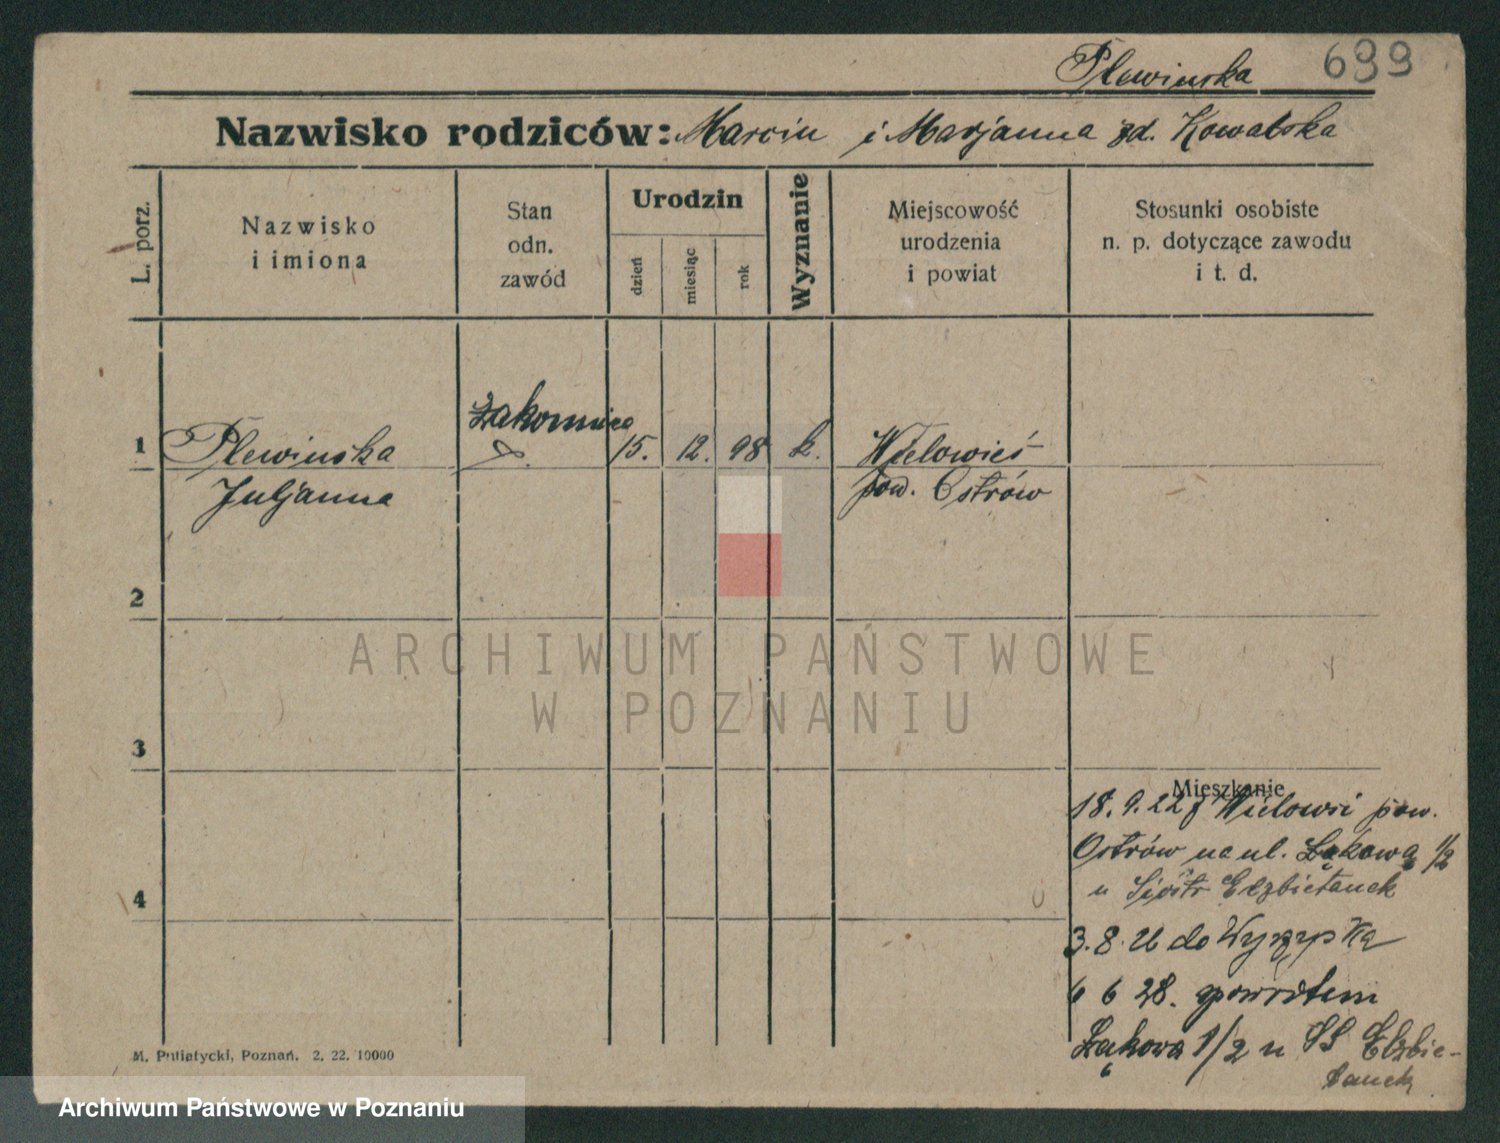 Plewinska 699
Nazwisko rodziców: Marcin i Marjanna zd. Kowalska
L. porz.
Nazwisko
i imiona
Stan
odn.
zawód
Urodzin
dzień
miesiąc
rok
Wyznanie
Miejscowość
urodzenia
i powiat
Stosunki osobiste
n. p. dotyczące zawodu
i t. d.
Zakonnica
1 Plewinska 15. 12. 98 k. Wielowieś
Juljanna pow. Ostrów
2
3
Mieszkanie
18. 9. 22 z Wielowsi pow.
Ostrów na ul. Łąkową 1/2
u Siostr Elzbietanek
4
3. 8. 26 do
6 6 28. powrotem
Łąkowa 1/2 u SS Elzbie-
tanek
M. Putiatycki, Poznań. 2. 22. 10000
ARCHIWUM PAŃSTWOWE
W POZNANIU
Archiwum Państwowe w Poznaniu